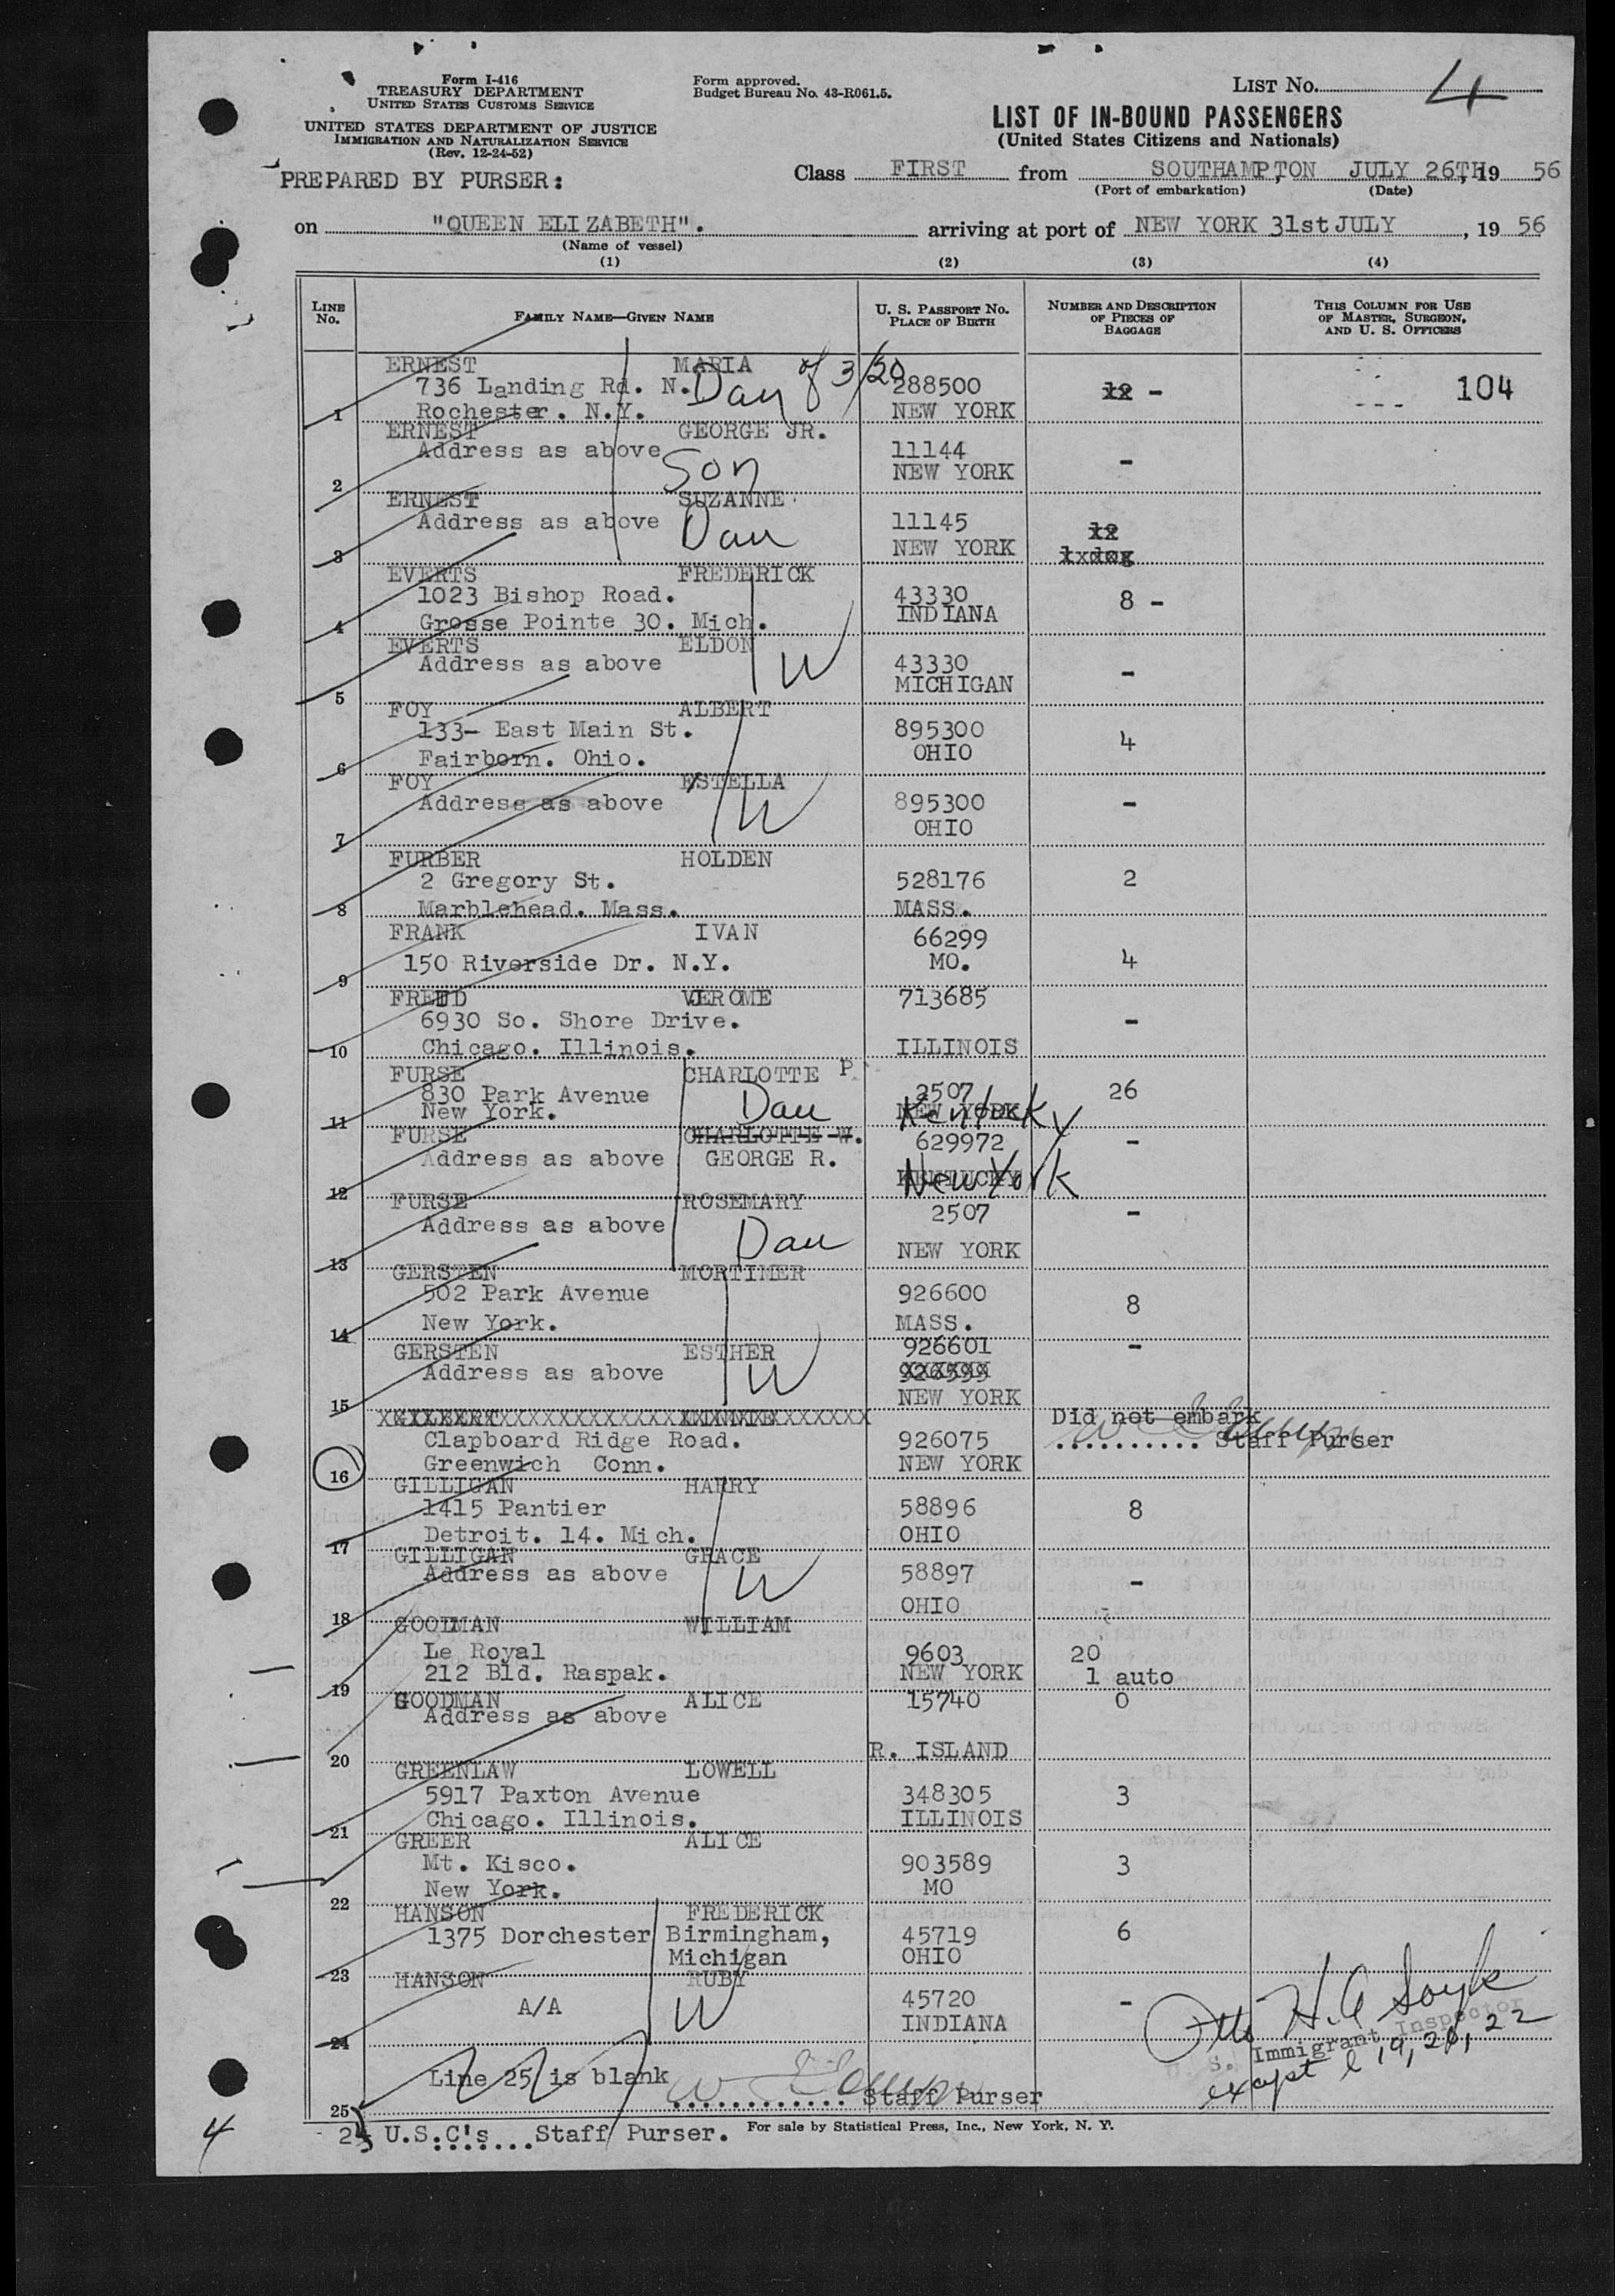 Form I-416
TREASURY DEPARTMENT
UNITED STATES CUSTOMS SERVICE
UNITED STATES DEPARTMENT OF JUSTICE
IMMIGRATION AND NATURALIZATION SERVICE
(Rev. 12-24-52)
PREPARED BY PURSER:
Form approved.
Budget Bureau No. 43-R061.5.
LIST NO. 4
LIST OF IN-BOUND PASSENGERS
(United States Citizens and Nationals)
Class FIRST from SOUTHAMPTON, JULY 26TH, 19 56
(Port of embarkation) (Date)
on "QUEEN ELIZABETH". arriving at port of NEW YORK 31st JULY, 19 56
(Name of vessel)
(1) (2) (3) (4)
LINE NO.
FAMILY NAME—GIVEN NAME
U. S. PASSPORT NO. PLACE OF BIRTH
NUMBER AND DESCRIPTION OF PIECES OF BAGGAGE
THIS COLUMN FOR USE OF MASTER, SURGEON, AND U. S. OFFICERS
ERNEST MARIA
736 Landing Rd. N. Dau of 3/20 288500 12 - 104
1 Rochester. N.Y. NEW YORK
ERNEST GEORGE JR.
Address as above 11144 -
2 Son NEW YORK
ERNEST SUZANNE
Address as above Dau 11145 12
3 NEW YORK 1xdog
EVERTS FREDERICK
1023 Bishop Road. 43330 8 -
4 Grosse Pointe 30. Mich. INDIANA
EVERTS ELDON
Address as above W 43330 -
5 MICHIGAN
FOY ALBERT
133- East Main St. 895300 4
6 Fairborn. Ohio. OHIO
FOY ESTELLA
Address as above W 895300 -
7 OHIO
FURBER HOLDEN
2 Gregory St. 528176 2
8 Marblehead. Mass. MASS.
FRANK IVAN 66299
9 150 Riverside Dr. N.Y. MO. 4
FREUD JEROME 713685
6930 So. Shore Drive. -
10 Chicago. Illinois. ILLINOIS
FURSE CHARLOTTE P.
830 Park Avenue Dau 2507 26
11 New York. NEW YORK Kentucky
FURSE CHARLOTTE W. 629972 -
12 Address as above GEORGE R. KENTUCKY New York
FURSE ROSEMARY
Address as above 2507 -
13 Dau NEW YORK
GERSTEN MORTIMER
502 Park Avenue 926600 8
14 New York. MASS.
GERSTEN ESTHER 926601 -
Address as above W 926599
15 NEW YORK
GILBERT XXXXXXXXXXXX Did not embark
Clapboard Ridge Road. 926075 .......... Staff Purser
16 Greenwich Conn. NEW YORK
GILLIGAN HARRY
1415 Pantier 58896 8
17 Detroit. 14. Mich. OHIO
GILLIGAN GRACE
Address as above W 58897 -
18 OHIO
GOODMAN WILLIAM
Le Royal 9603 20
19 212 Bld. Raspak. NEW YORK 1 auto
GOODMAN ALICE 15740 0
Address as above
20 R. ISLAND
GREENLAW LOWELL
5917 Paxton Avenue 348305 3
21 Chicago. Illinois. ILLINOIS
GREER ALICE
Mt. Kisco. 903589 3
22 New York. MO
HANSON FREDERICK
1375 Dorchester Birmingham, 45719 6
23 Michigan OHIO
HANSON RUBY
A/A W 45720 -
24 INDIANA
Otto H. A
U. S. Immigrant Inspector
except l 19, 20, 22
Line 25 is blank
25 ............ Staff Purser
24 U.S.C's ...... Staff Purser. For sale by Statistical Press, Inc., New York, N. Y.
4